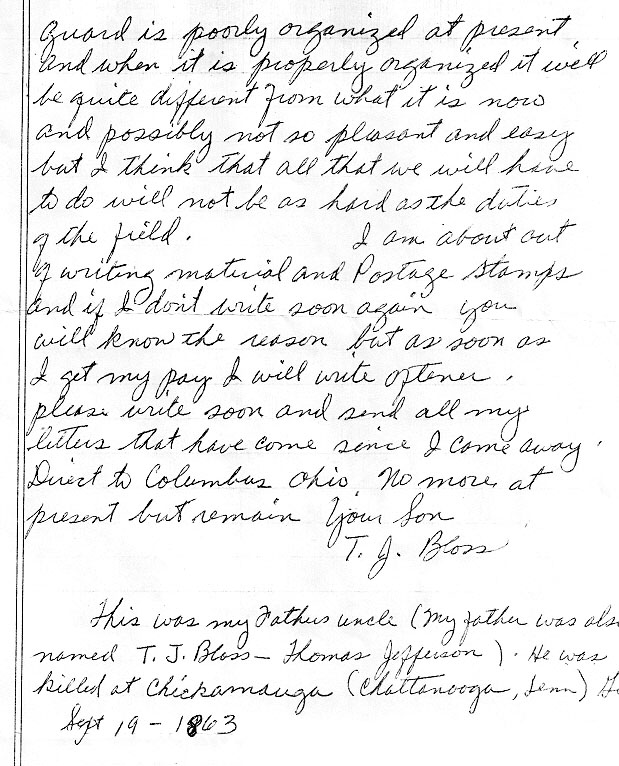 guard is poorly organized at present
and when it is properly organized it will
be quite different from what it is now
and possibly not so pleasant and easy
but I think that all that we will have
to do will not be as hard as the duties
of the field. I am about out
of writing material and Postage stamps
and if I don't write soon again you
will know the reason but as soon as
I get my pay I will write oftener.
please write soon and send all my
letters that have come since I came away.
Direct to Columbus Ohio. No more at
present but remain Your Son
T. J. Bloss
This was my Fathers uncle (My father was also
named T. J. Bloss - Thomas Jefferson). He was
killed at Chickamauga (Chattanooga, Tenn)
Sept 19 - 1863